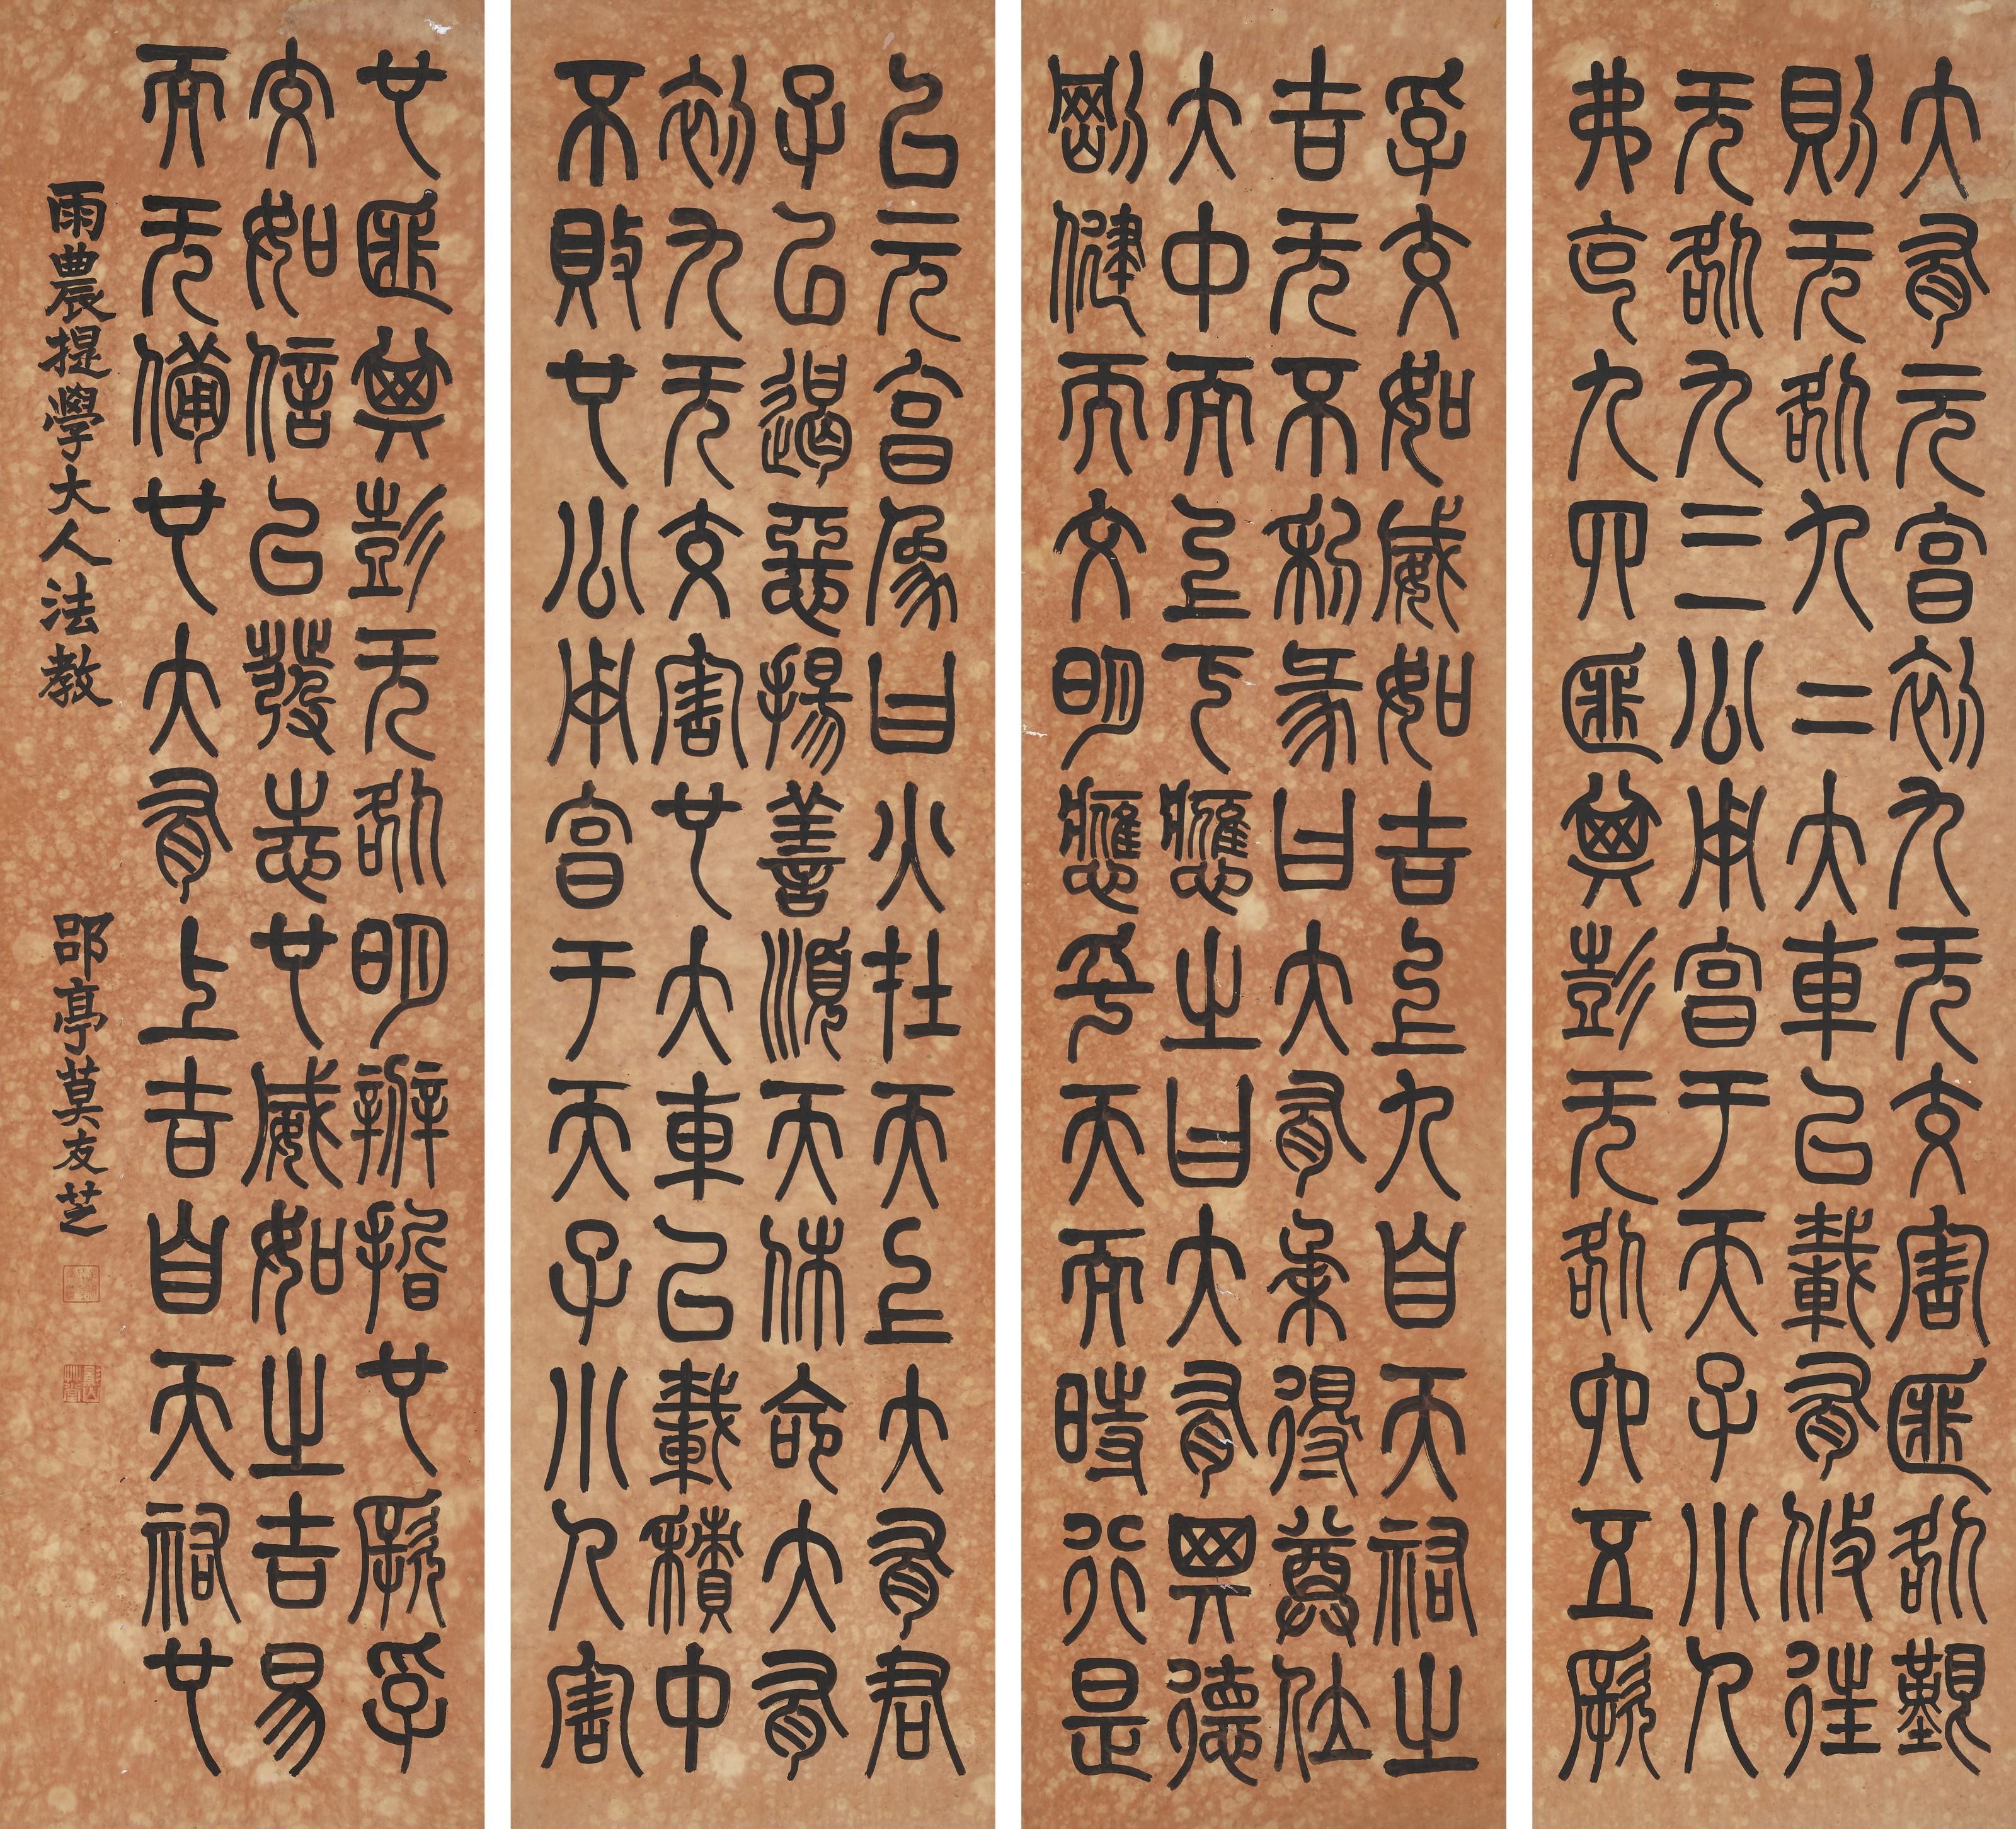 大有元亯初九无交害匪咎艱
則无咎九二大車以載有攸往
无咎九三公用亯于天子小人
弗克九四匪其彭无咎六五厥
孚交如威如吉上九自天祐之
吉无不利彖曰大有柔得尊位
大中而上下應之曰大有其德
剛健而文明應乎天而時行是
以元亯象曰火在天上大有君
子以遏惡揚善順天休命大有
初九无交害也大車以載積中
不敗也公用亯于天子小人害
也匪其彭无咎明辨晢也厥孚
交如信以發志也威如之吉易
而无備也大有上吉自天祐也
雨農提學大人法教 郘亭莫友芝